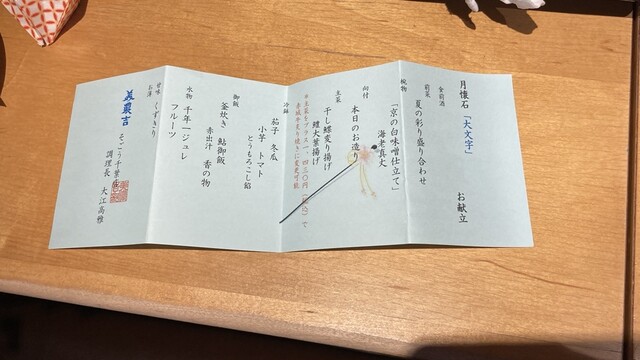 月懐石「大文字」 お献立
食前酒
前菜 夏の彩り盛り合わせ
椀物 「京の白味噌仕立て」
海老真丈
向付 本日のお造り
主菜 干し鰈変り揚げ
鱧大葉揚げ
※主菜をプラス一、四三〇円（税込）で
赤城牛すき焼きに変更可能
冷鉢 茄子 冬瓜
小芋 トマト
とうもろこし餡
御飯 釜炊き 鮎御飯
赤出汁 香の物
水物 千年一ジュレ
フルーツ
甘味 くずきり
お薄
美濃吉 そごう千葉店
調理長 大江高雅